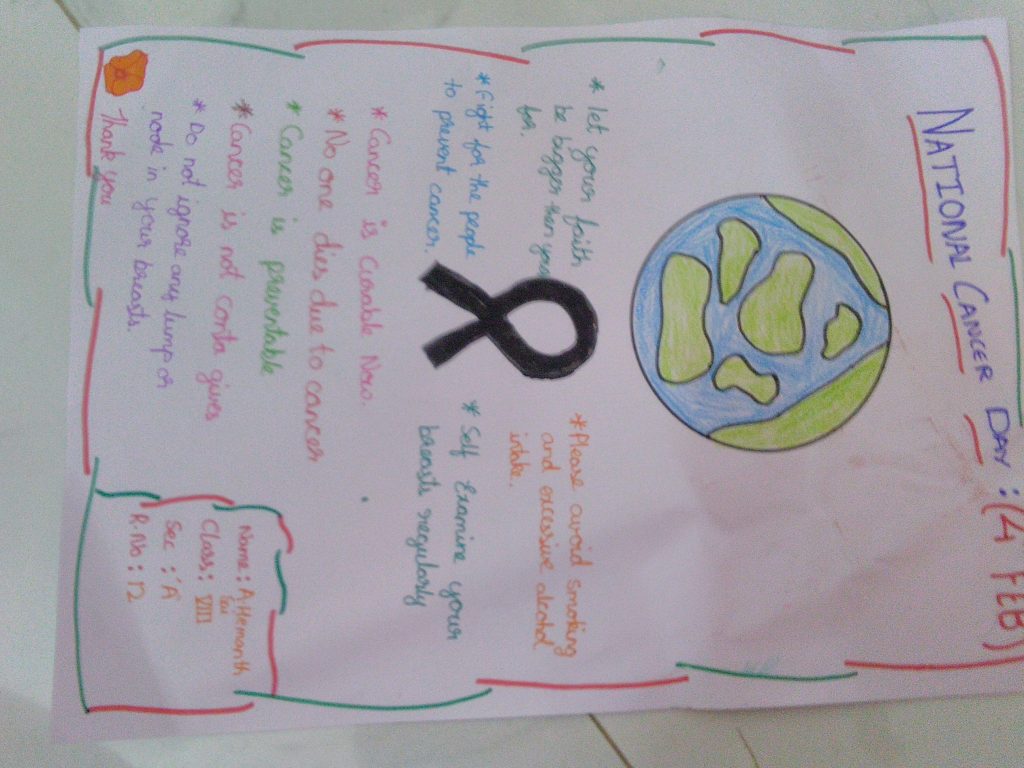 NATIONAL CANCER DAY :(4 FEB)
* let your faith
be bigger then your
for.
* Please avoid smoking
and excessive alcohol
intake.
* Fight for the people
to prevent cancer.
* Self Examine your
breasts regularly
* Cancer is curable Now.
* No one dies due to cancer
* Cancer is preventable
* Cancer is not conta gives
* Do not ignore any lump or
node in your breasts.
Thank you
Name : A. Hemanth
Sai
Class : VIII
Sec : 'A'
R.No : 12